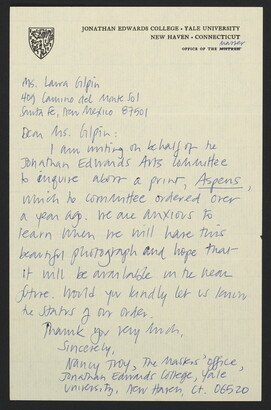 JONATHAN EDWARDS COLLEGE • YALE UNIVERSITY
NEW HAVEN • CONNECTICUT
master
OFFICE OF THE
Ms. Laura Gilpin
409 Camino del Monte Sol
Santa Fe, New Mexico 87501
Dear Ms. Gilpin:
I am writing on behalf of the
Jonathan Edwards Arts Committee
to inquire about a print, Aspens,
which the committee ordered over
a year ago. We are anxious to
learn when we will have this
beautiful photograph and hope that
it will be available in the near
future. Would you kindly let us know
the status of our order.
Thank you very much,
Sincerely,
Nancy Troy, The Masters' Office,
Jonathan Edwards College, Yale
University, New Haven, Ct. 06520